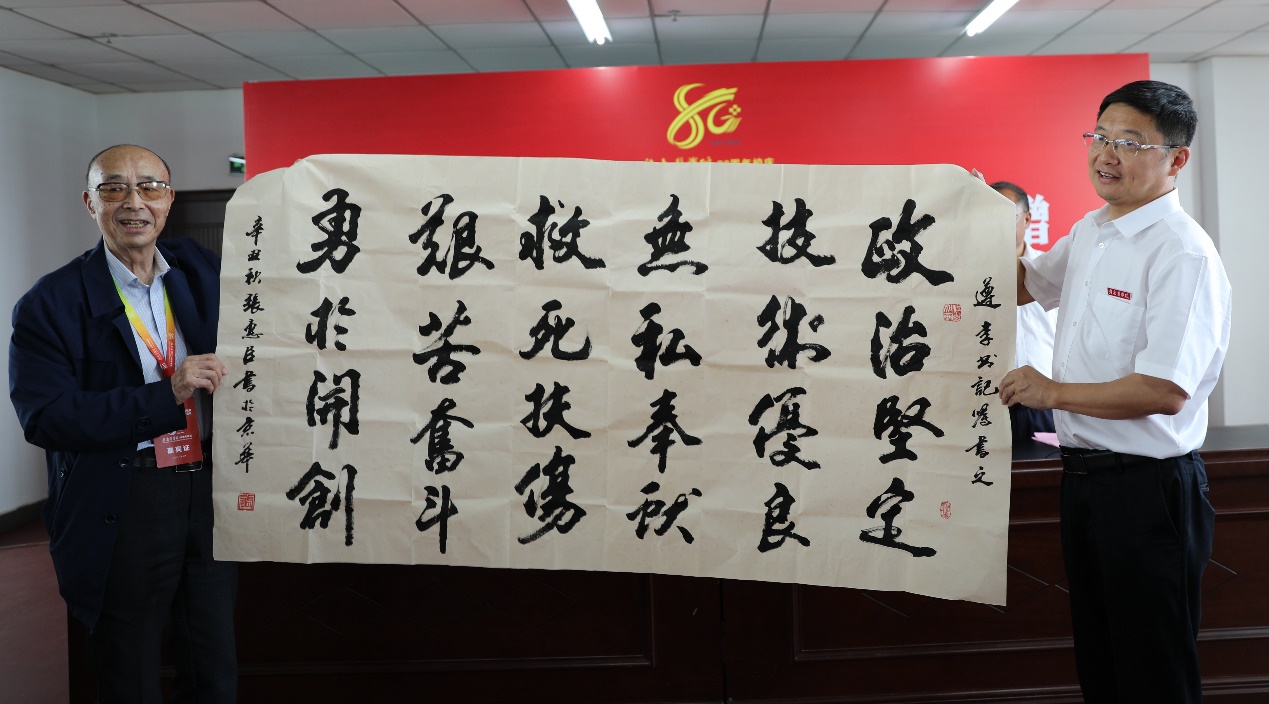 遵李书記嘱書文
政治堅定
技術優良
無私奉献
救死扶傷
艱苦奮斗
勇於開創
辛丑秋張惠臣書於京華
80
增
嘉宾证